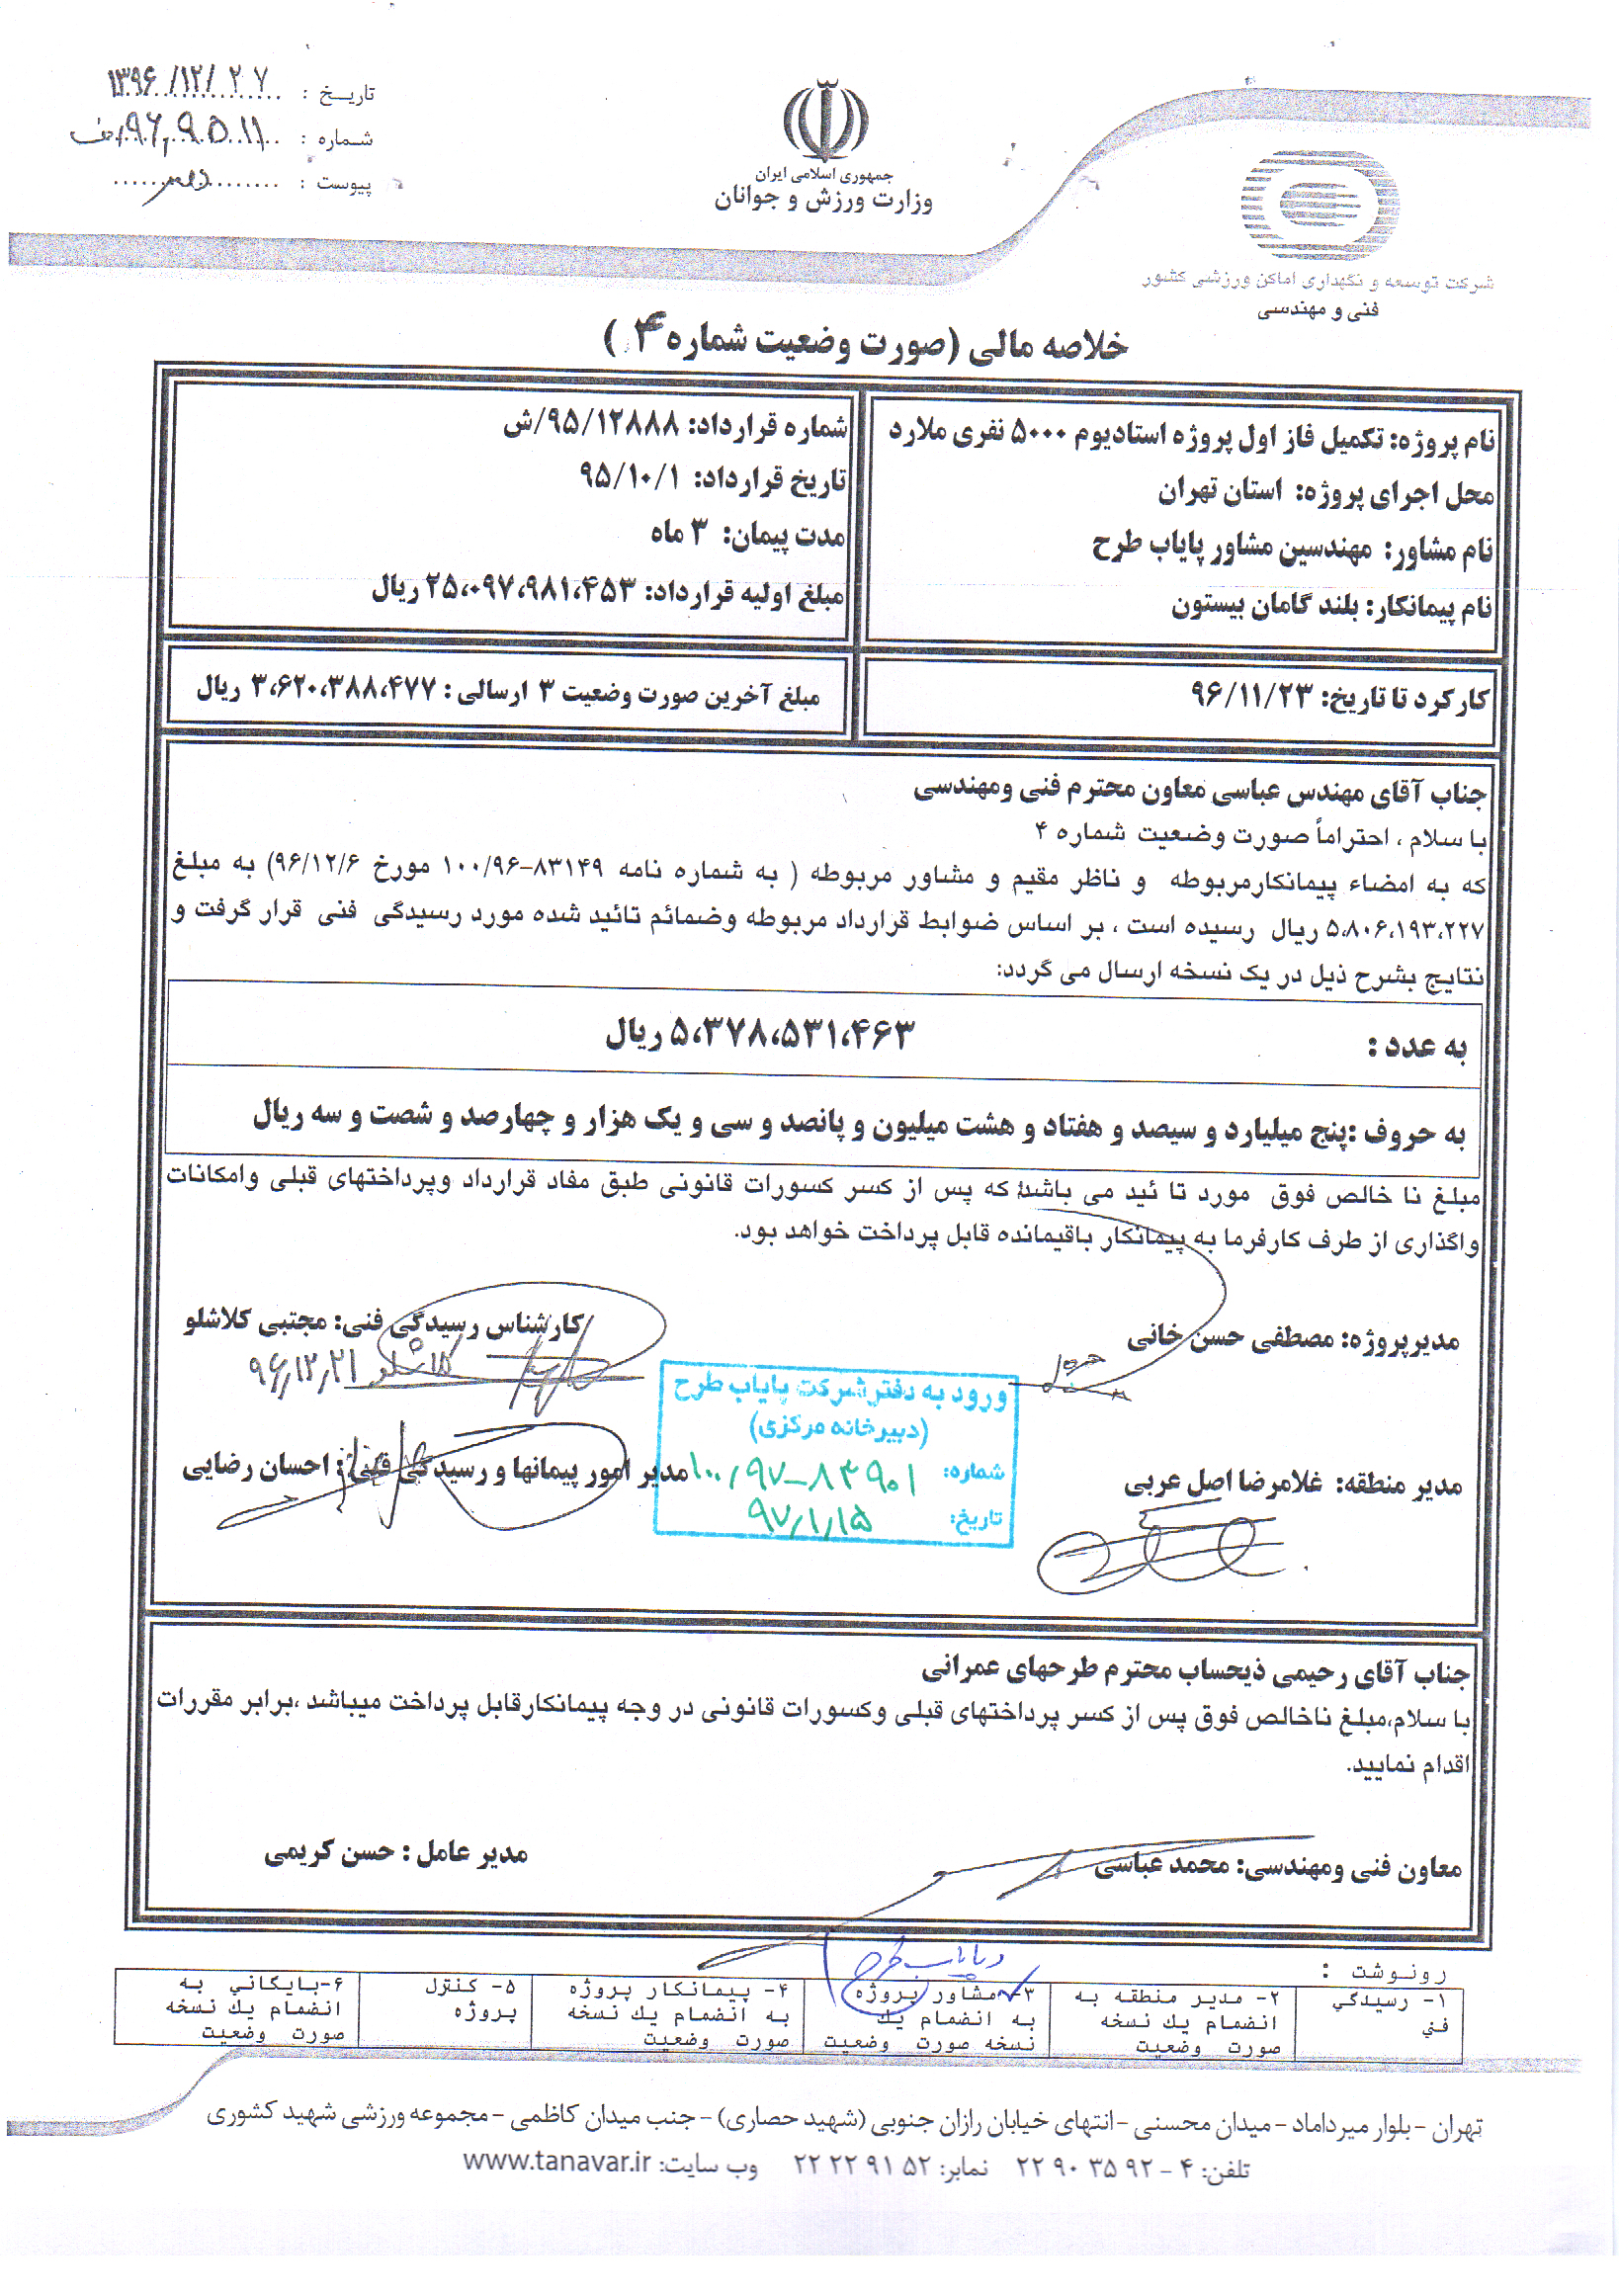 تاریخ : ۱۳۹۶/۱۲/۲۷
شماره : ۹۶,۹۵۱۱/ف
پیوست :
جمهوری اسلامی ایران
وزارت ورزش و جوانان
شرکت توسعه و نگهداری اماکن ورزشی کشور
فنی و مهندسی
خلاصه مالی (صورت وضعیت شماره ۴ )
نام پروژه: تکمیل فاز اول پروژه استادیوم ۵۰۰۰ نفری ملارد
محل اجرای پروژه: استان تهران
نام مشاور: مهندسین مشاور پایاب طرح
نام پیمانکار: بلند گامان بیستون
شماره قرارداد: ۹۵/۱۲۸۸۸/ش
تاریخ قرارداد: ۹۵/۱۰/۱
مدت پیمان: ۳ ماه
مبلغ اولیه قرارداد: ۲۵،۰۹۷،۹۸۱،۴۵۳ ریال
کارکرد تا تاریخ: ۹۶/۱۱/۲۳
مبلغ آخرین صورت وضعیت ۳ ارسالی : ۳،۶۲۰،۳۸۸،۴۷۷ ریال
جناب آقای مهندس عباسی معاون محترم فنی ومهندسی
با سلام ، احتراماً صورت وضعیت شماره ۴
که به امضاء پیمانکارمربوطه و ناظر مقیم و مشاور مربوطه ( به شماره نامه ۸۳۱۴۹-۱۰۰/۹۶ مورخ ۹۶/۱۲/۶) به مبلغ
۵،۸۰۶،۱۹۳،۲۲۷ ریال رسیده است ، بر اساس ضوابط قرارداد مربوطه وضمائم تائید شده مورد رسیدگی فنی قرار گرفت و
نتایج بشرح ذیل در یک نسخه ارسال می گردد:
به عدد : ۵،۳۷۸،۵۳۱،۴۶۳ ریال
به حروف :پنج میلیارد و سیصد و هفتاد و هشت میلیون و پانصد و سی و یک هزار و چهارصد و شصت و سه ریال
مبلغ نا خالص فوق مورد تا ئید می باشد که پس از کسر کسورات قانونی طبق مفاد قرارداد وپرداختهای قبلی وامکانات
واگذاری از طرف کارفرما به پیمانکار باقیمانده قابل پرداخت خواهد بود.
مدیرپروژه: مصطفی حسن خانی
کارشناس رسیدگی فنی: مجتبی کلاشلو
کلاشلو ۹۶,۱۲,۲۱
ورود به دفتر شرکت پایاب طرح
(دبیرخانه مرکزی)
شماره: ۱۰۰/۹۷-۸۳۹۰۱
تاریخ: ۹۷/۱/۱۵
مدیر منطقه: غلامرضا اصل عربی
مدیر امور پیمانها و رسیدگی فنی: احسان رضایی
جناب آقای رحیمی ذیحساب محترم طرحهای عمرانی
با سلام،مبلغ ناخالص فوق پس از کسر پرداختهای قبلی وکسورات قانونی در وجه پیمانکارقابل پرداخت میباشد ،برابر مقررات
اقدام نمایید.
معاون فنی ومهندسی: محمد عباسی
مدیر عامل : حسن کریمی
پایاب طرح
رونوشت :
۱- رسیدگي
فني
۲- مدیر منطقه به
انضمام یك نسخه
صورت وضعیت
۳- مشاور پروژه
به انضمام یك
نسخه صورت وضعیت
۴- پیمانکار پروژه
به انضمام یك نسخه
صورت وضعیت
۵- کنترل
پروژه
۶-بایگاني به
انضمام یك نسخه
صورت وضعیت
تهران - بلوار میرداماد - میدان محسنی - انتهای خیابان رازان جنوبی (شهید حصاری) - جنب میدان کاظمی - مجموعه ورزشی شهید کشوری
تلفن: ۴ - ۹۲ ۳۵ ۹۰ ۲۲ نمابر: ۵۲ ۹۱ ۲۲ ۲۲ وب سایت: www.tanavar.ir